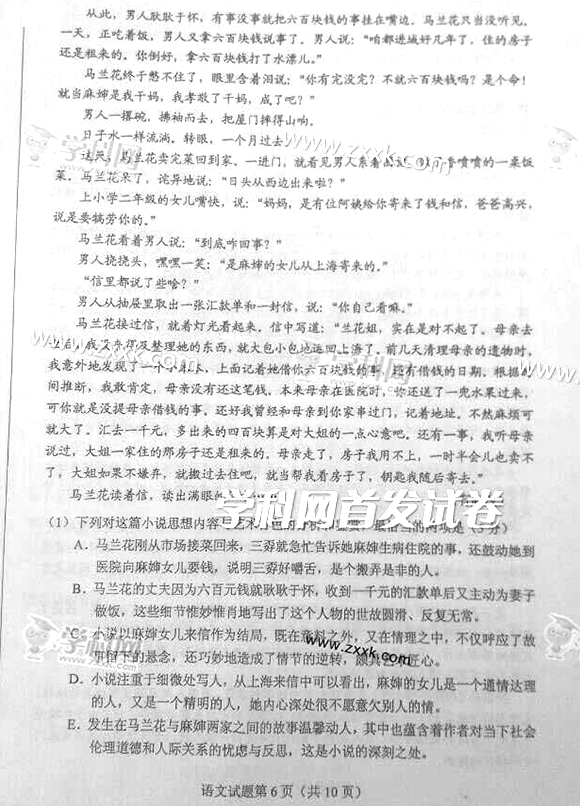 从此，男人耿耿于怀，有事没事就把六百块钱的事挂在嘴边。马兰花只当没听见。
一天，正吃着饭，男人又拿六百块钱说事了。男人说：“咱都进城好几年了，住的房子
还是租来的。你倒好，拿六百块钱打了水漂儿。”
马兰花终于憋不住了，眼里含着泪说：“你有完没完？不就六百块钱吗？是个命！
就当麻婶是我干妈，我孝敬了干妈，成了吧？”
男人一撂碗，拂袖而去，把屋门摔得山响。
日子水一样流淌。转眼，一个月过去
这天，马兰花卖完菜回到家。一进门，就看见男人系着 香喷喷的一桌饭
菜。马兰花呆了，诧异地说：“日头从西边出来啦？”
上小学二年级的女儿嘴快，说：“妈妈，是有位阿姨给你寄来了钱和信，爸爸高兴，
说是要犒劳你的。”
马兰花看着男人说：“到底咋回事？”
男人挠挠头，嘿嘿一笑：“是麻婶的女儿从上海寄来的。”
“信里都说了些啥？”
男人从抽屉里取出一张汇款单和一封信，说：“你自己看嘛。”
马兰花接过信，就着灯光看起来。信中写道：“兰花姐，实在是对不起了。母亲去
世后，我没来得及整理她的东西，就大包小包地运回上海了。前几天清理母亲的遗物时，
我意外地发现了一个小本本，上面记着她借你六百块钱的事，还有借钱的日期。根据时
间推断，我敢肯定，母亲没有还这笔钱。本来母亲在医院时，你还送了一兜水果过来，
可你就是没提母亲借钱的事。还好我曾经和母亲到你家串过门，记着地址。不然麻烦可
就大了。汇去一千元，多出来的四百块算是对大姐的一点心意吧。还有一事，我听母亲
说过，大姐一家住的那房子还是租来的。母亲走了，房子我用不上，一时半会儿也卖不
了，大姐如果不嫌弃，就搬过去住吧，就当帮我看房子了，钥匙我随后寄去。”
马兰花读着信，读出满眼的
（1）下列对这篇小说思想内容 最恰当的两项是（5分）
A．马兰花刚从市场接菜回来，三孬就急忙告诉她麻婶生病住院的事，还鼓动她到
医院向麻婶女儿要钱，说明三孬好嚼舌，是个搬弄是非的人。
B．马兰花的丈夫因为六百元钱就耿耿于怀，收到一千元的汇款单后又主动为妻子
做饭，这些细节惟妙惟肖地写出了这个人物的世故圆滑、反复无常。
C．小说以麻婶女儿来信作为结局，既在意料之外，又在情理之中，不仅呼应了故
事情节上的悬念，还巧妙地造成了情节的逆转，颇具 匠心。
D．小说注重于细微处写人，从上海来信中可以看出，麻婶的女儿是一个通情达理
的人，又是一个精明的人，她内心深处很不愿意欠别人的情。
E．发生在马兰花与麻婶两家之间的故事温馨动人，其中也蕴含着作者对当下社会
伦理道德和人际关系的忧虑与反思，这是小说的深刻之处。
学科网首发试卷
语文试题第 6 页（共 10 页）
学科网
www.zxxk.com